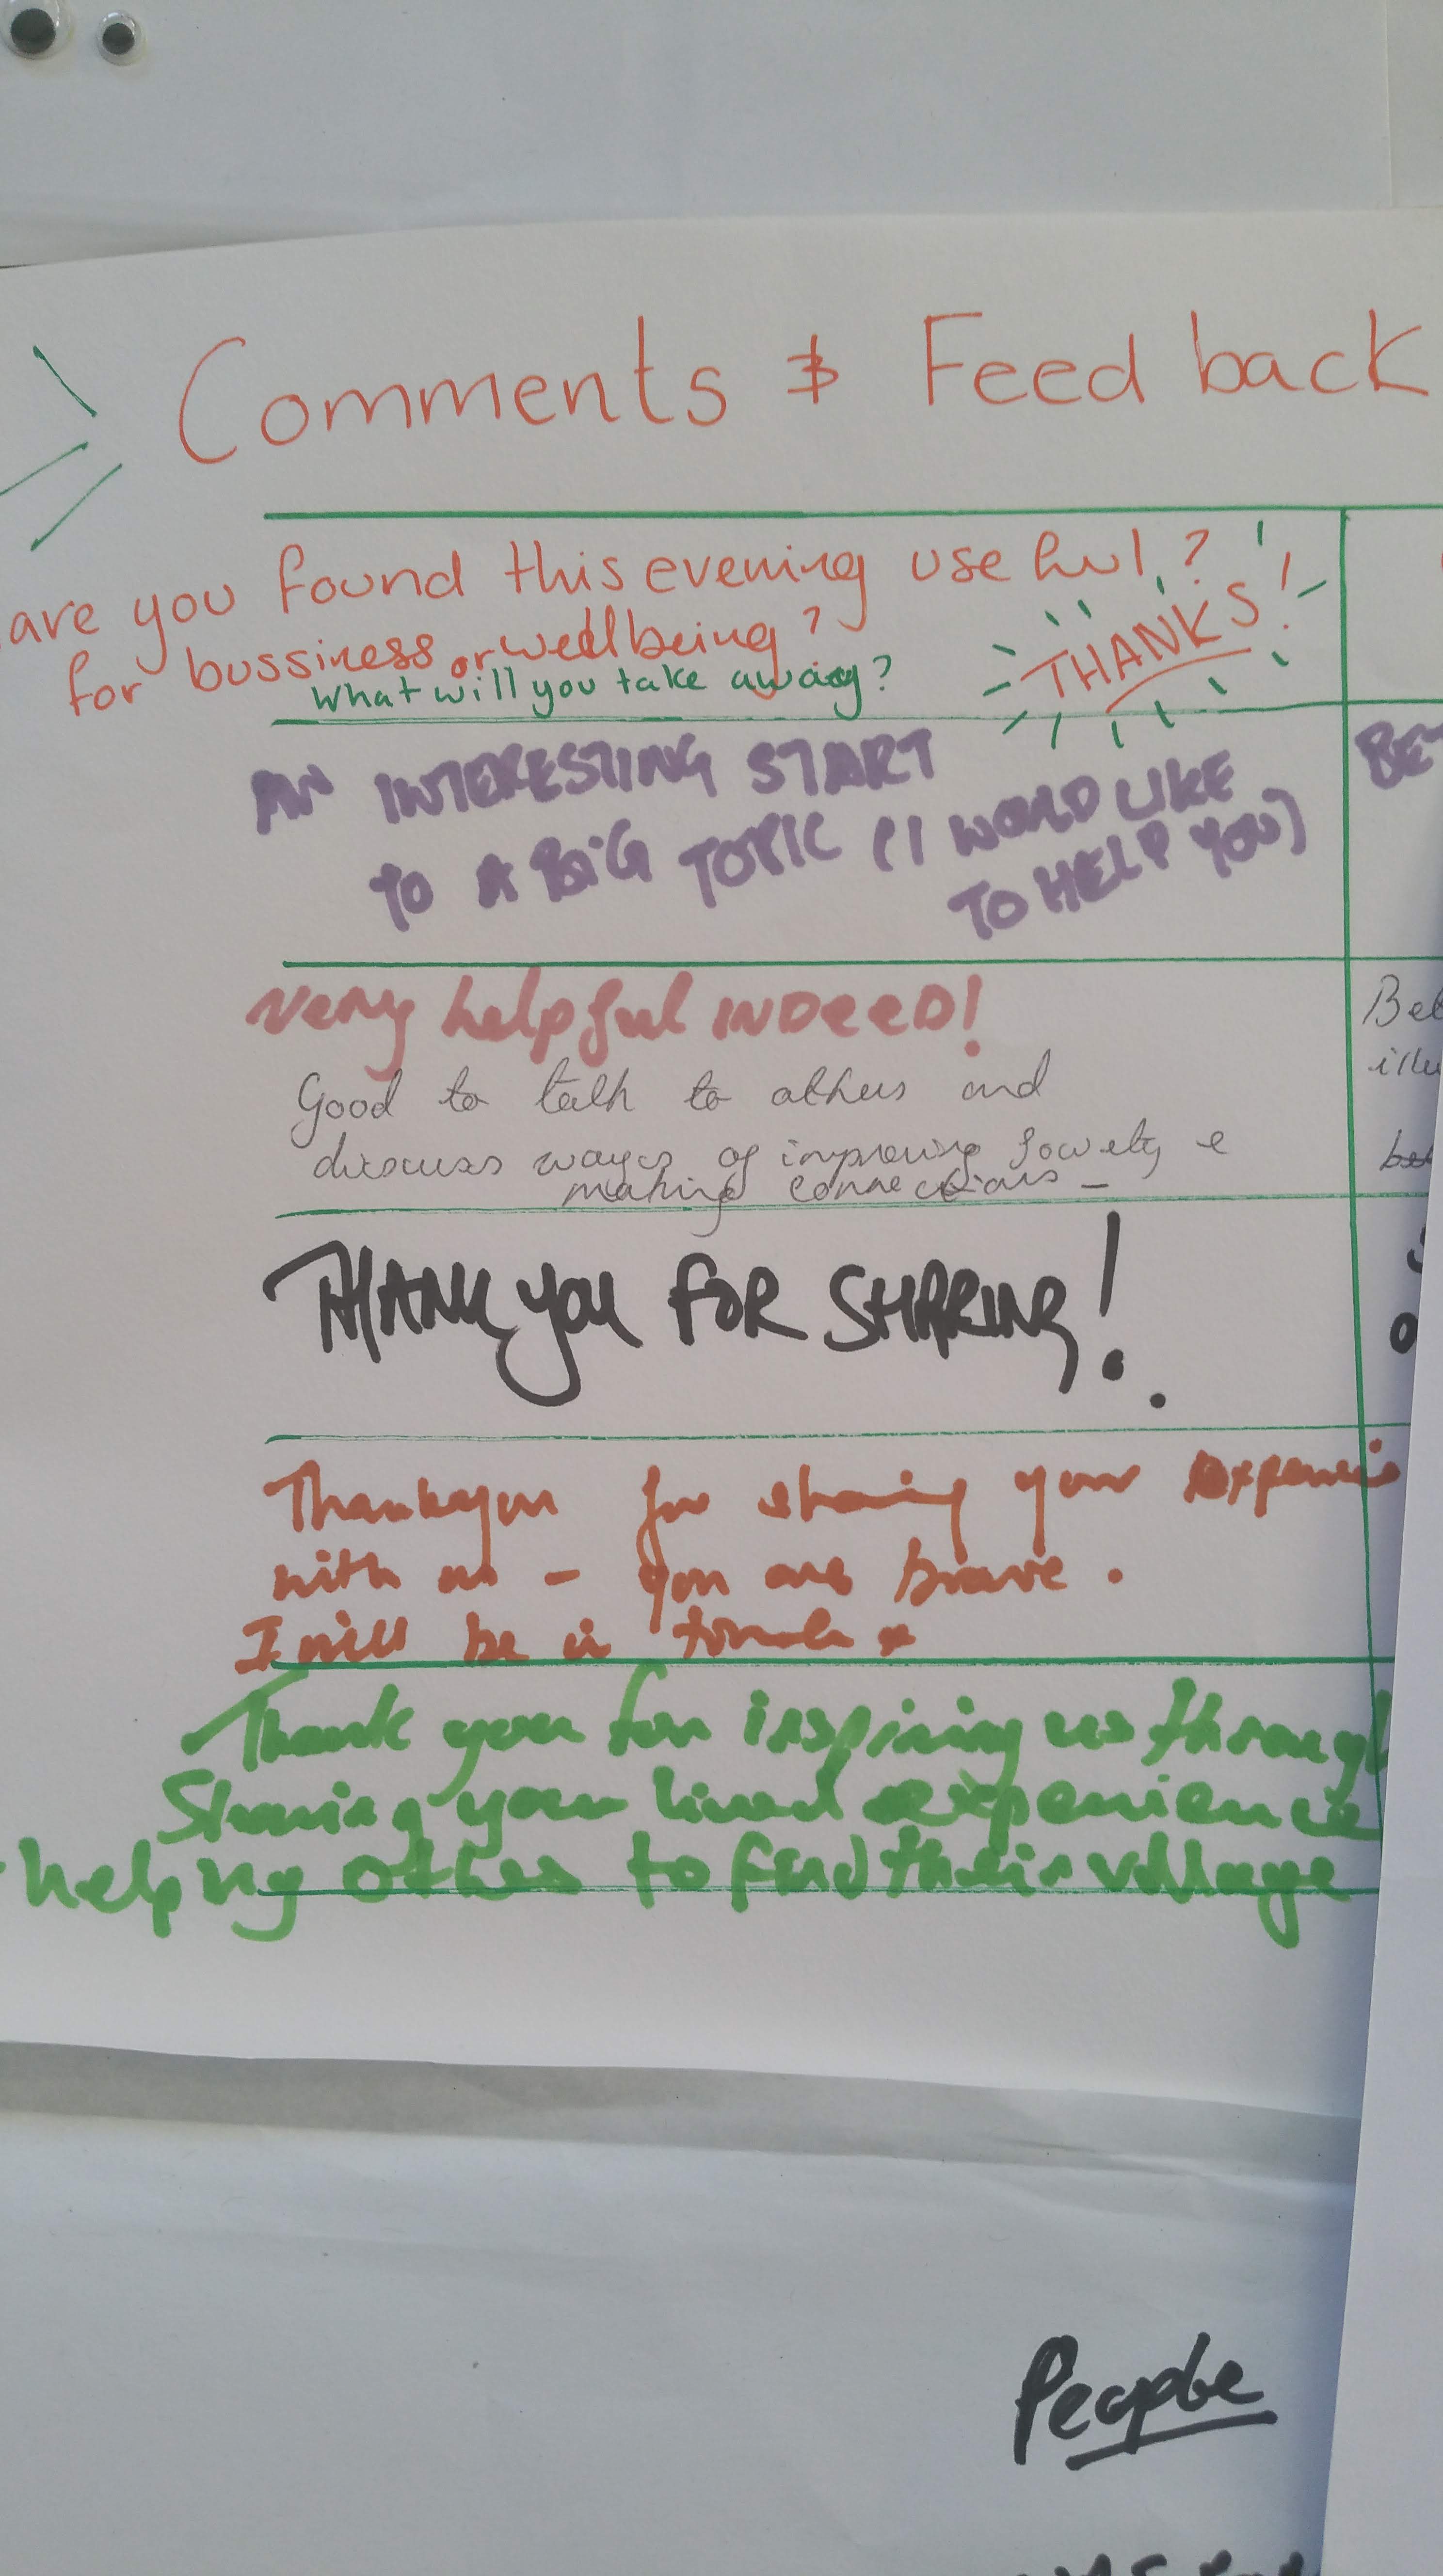 Comments & Feed back
are you found this evening useful?
for bussiness or wellbeing?
THANKS!
What will you take away?
AN INTERESTING START
TO A BIG TOPIC (I WOULD LIKE
TO HELP YOU)
BET
Very helpful INDEED!
Good to talk to others and
discuss ways of improving society &
making connections -
Bel
illu
THANK YOU FOR SHARING!
Thankyou for sharing your
with us - you are brave.
I will be in touch
Thank you for inspiring us through
Sharing your lived experience
helping others to find their village
People